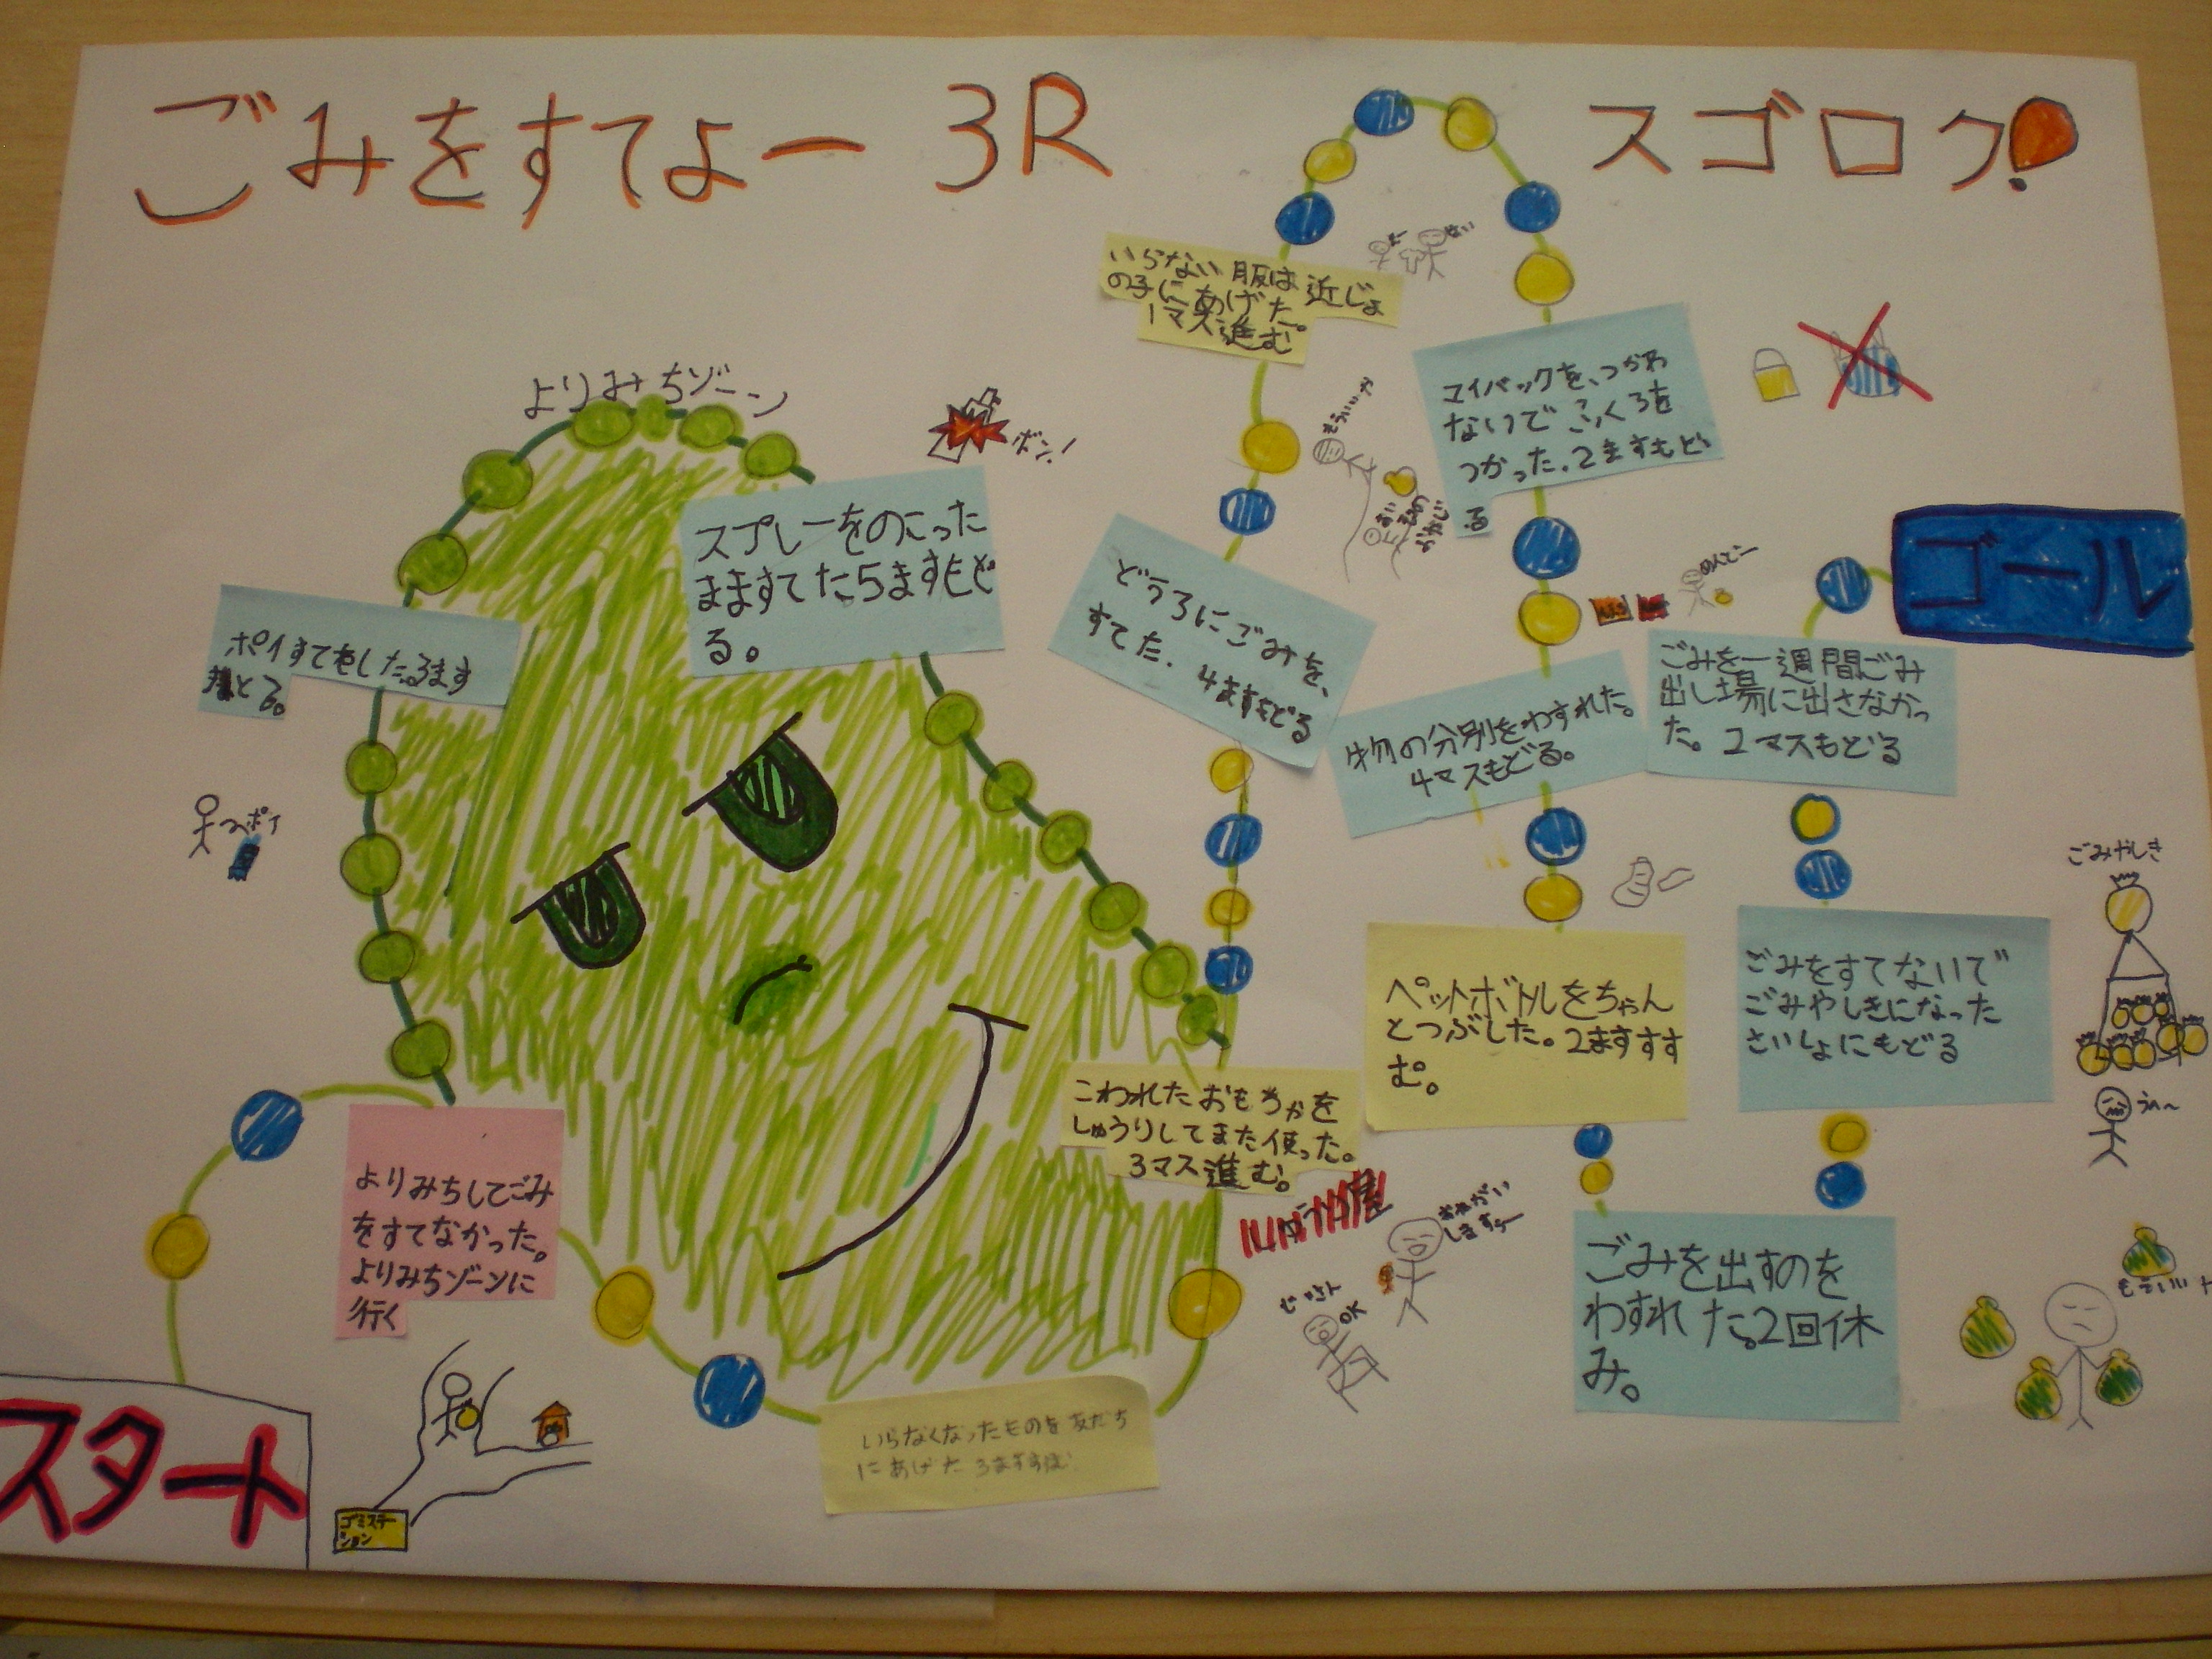 ごみをすてよー 3R スゴロク!
よりみちゾーン
ボン!
いらない服は近じょ
の子にあげた。
1マス進む
マイバックを、つかわ
ないで ふくろを
つかった。2ますもど
る
スプレーをのこった
まますてた5ますもど
る。
どうろにごみを、
すてた. 4ますもどる
ゴール
ポイすてをした。
ます
とる。
ポイ
めんどー
物の分別をわすれた。
4マスもどる。
ごみを一週間ごみ
出し場に出さなかっ
た。2マスもどる
ごみやしき
ペットボトルをちゃん
とつぶした。2ますすす
む。
ごみをすてないで
ごみやしきになった
さいしょにもどる
こわれたおもちゃを
しゅうりしてまた使った。
3マス進む。
よりみちしてごみ
をすてなかった。
よりみちゾーンに
行く
おねがい
しますぅー
OK
ごみを出すのを
わすれた。2回休
み。
いらなくなったものを友だち
にあげた 3ますすすむ
スタート
ゴミステー
ション